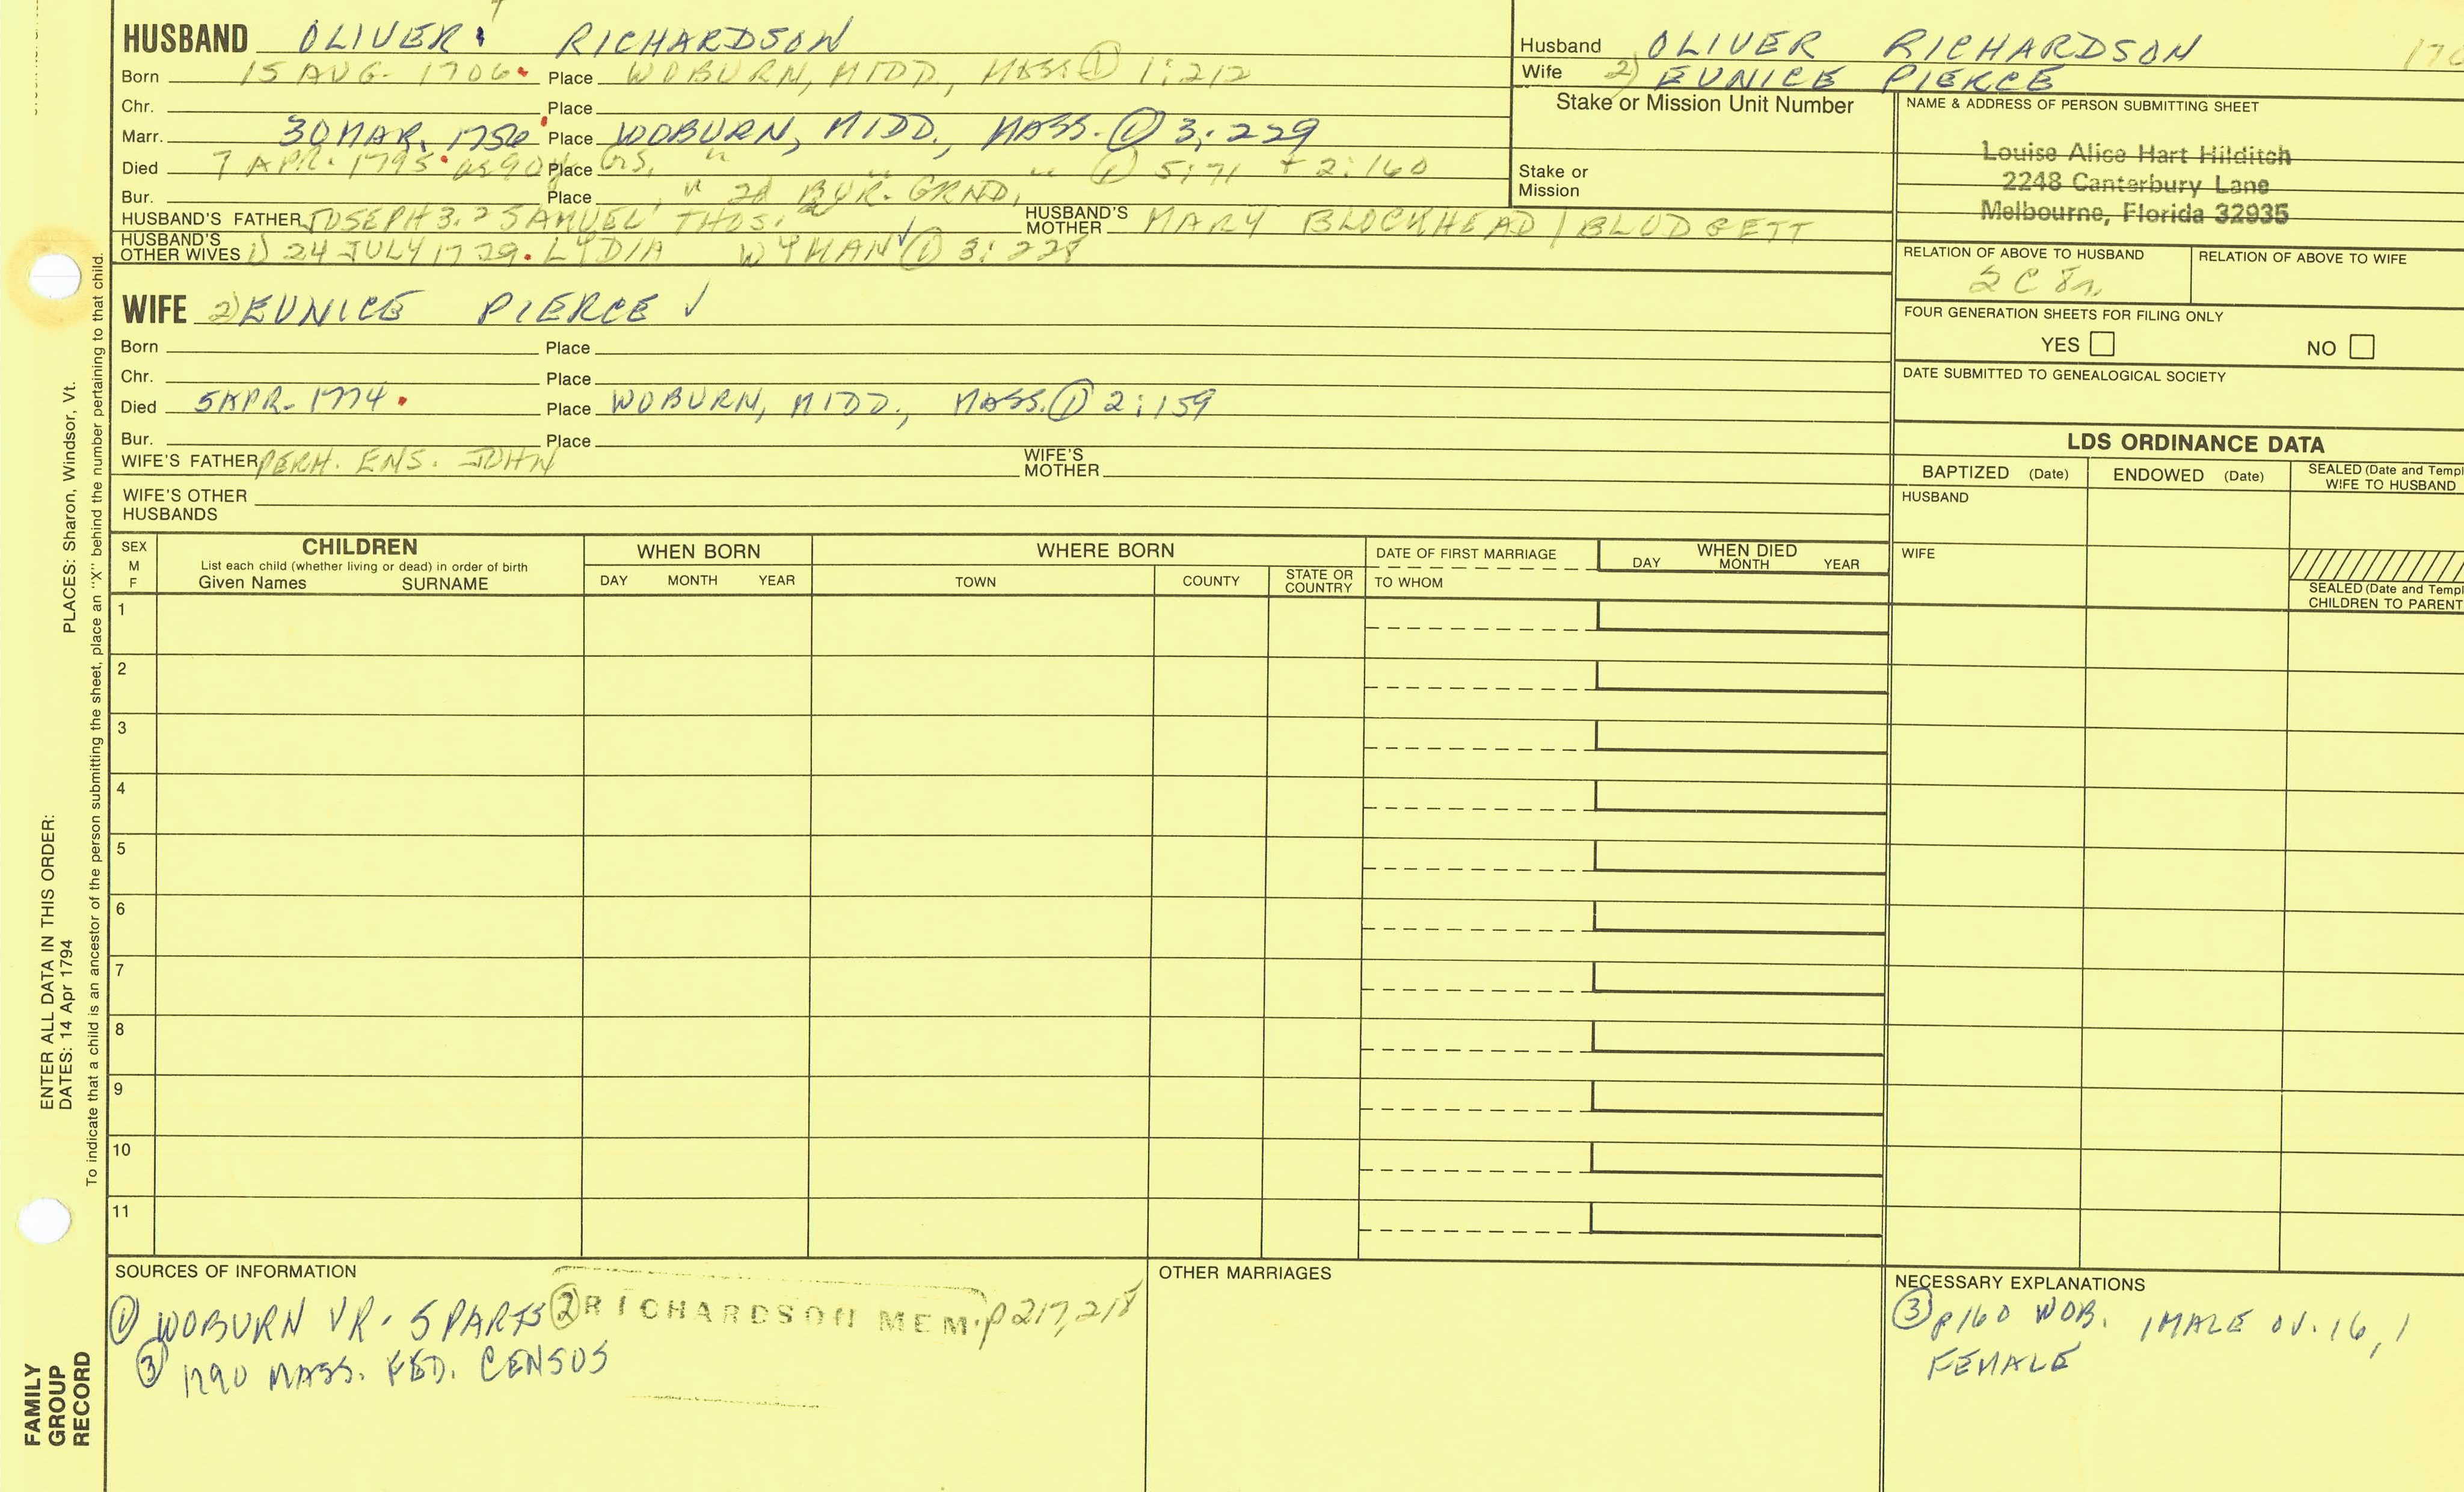 HUSBAND OLIVER RICHARDSON
Born 15 AUG. 1706 Place WOBURN, MIDD., MASS. ① 1:212
Chr. Place
Marr. 30 MAR. 1756 Place WOBURN, MIDD., MASS. ① 3:229
Died 7 APR. 1795 as 90y GS, Place " " " ① 5:71 + 2:160
Bur. Place " 2d BUR. GRND,
HUSBAND'S FATHER JOSEPH 3. 2 SAMUEL THOS. HUSBAND'S MOTHER MARY BLOCKHEAD / BLODGETT
HUSBAND'S OTHER WIVES 1) 24 JULY 1729. LYDIA WYMAN ✓ ① 3:228
WIFE 2) EUNICE PIERCE ✓
Born Place
Chr. Place
Died 5 APR. 1774 Place WOBURN, MIDD., MASS. ① 2:159
Bur. Place
WIFE'S FATHER PERH. ENS. JOHN WIFE'S MOTHER
WIFE'S OTHER HUSBANDS
Husband OLIVER RICHARDSON
Wife 2) EUNICE PIERCE
Stake or Mission Unit Number
Stake or Mission
NAME & ADDRESS OF PERSON SUBMITTING SHEET
Louise Alice Hart Hilditch
2248 Canterbury Lane
Melbourne, Florida 32935
RELATION OF ABOVE TO HUSBAND RELATION OF ABOVE TO WIFE
2C 8r
FOUR GENERATION SHEETS FOR FILING ONLY
YES NO
DATE SUBMITTED TO GENEALOGICAL SOCIETY
LDS ORDINANCE DATA
BAPTIZED (Date) ENDOWED (Date) SEALED (Date and Templ
WIFE TO HUSBAND
HUSBAND
WIFE
SEALED (Date and Templ
CHILDREN TO PARENT
SEX M F
CHILDREN
List each child (whether living or dead) in order of birth
Given Names SURNAME
WHEN BORN
DAY MONTH YEAR
WHERE BORN
TOWN COUNTY STATE OR COUNTRY
DATE OF FIRST MARRIAGE
TO WHOM
WHEN DIED
DAY MONTH YEAR
1
2
3
4
5
6
7
8
9
10
11
SOURCES OF INFORMATION
① WOBURN VR. 5 PARTS ② RICHARDSON MEM. p 217, 218
③ 1790 MASS. FED. CENSUS
OTHER MARRIAGES
NECESSARY EXPLANATIONS
③ p160 WOB. 1 MALE OV. 16, 1
FEMALE
PLACES: Sharon, Windsor, Vt.
ENTER ALL DATA IN THIS ORDER:
DATES: 14 Apr 1794
To indicate that a child is an ancestor of the person submitting the sheet, place an "X" behind the number pertaining to that child.
FAMILY
GROUP
RECORD